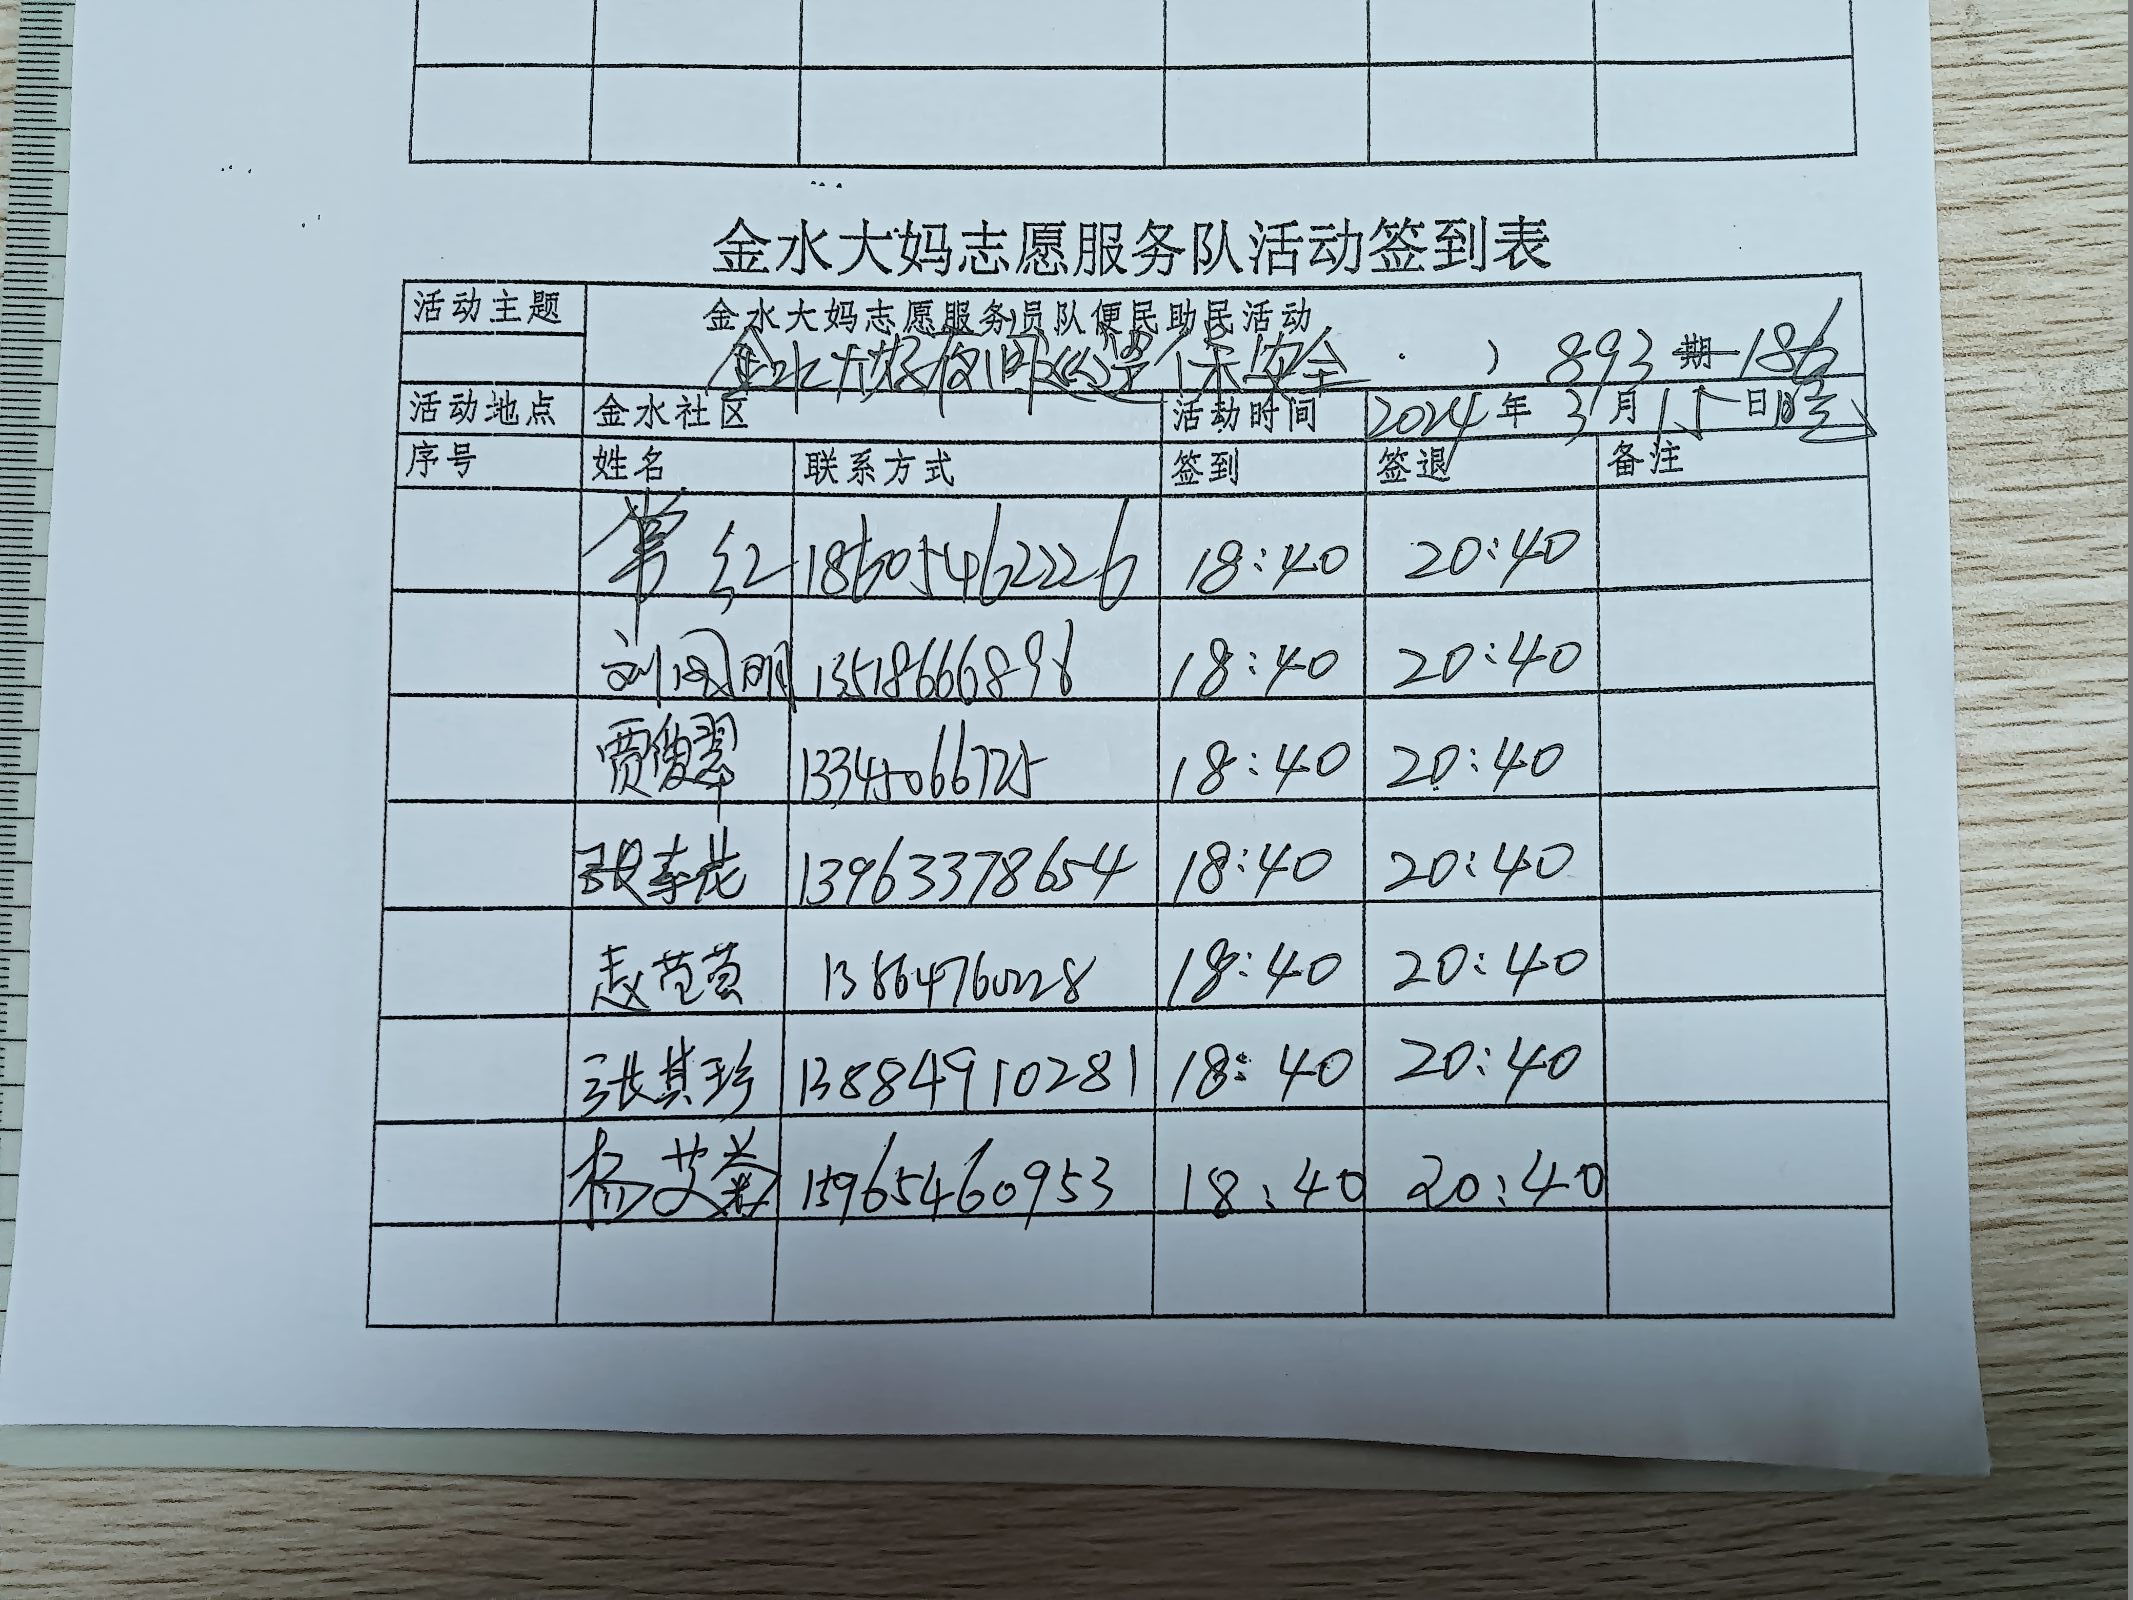 金水大妈志愿服务队活动签到表
活动主题 金水大妈志愿服务员队便民助民活动
金水大妈夜间巡逻保安全 ) 893期-186
活动地点 金水社区 活动时间 2024年3月15日晚
序号 姓名 联系方式 签到 签退 备注
红 18605462226 18:40 20:40
刘国明 13518666898 18:40 20:40
贾俊翠 13345066725 18:40 20:40
张春花 13963378654 18:40 20:40
13864760228 18:40 20:40
张其珍 13884910281 18:40 20:40
杨艾菊 15965460953 18:40 20:40